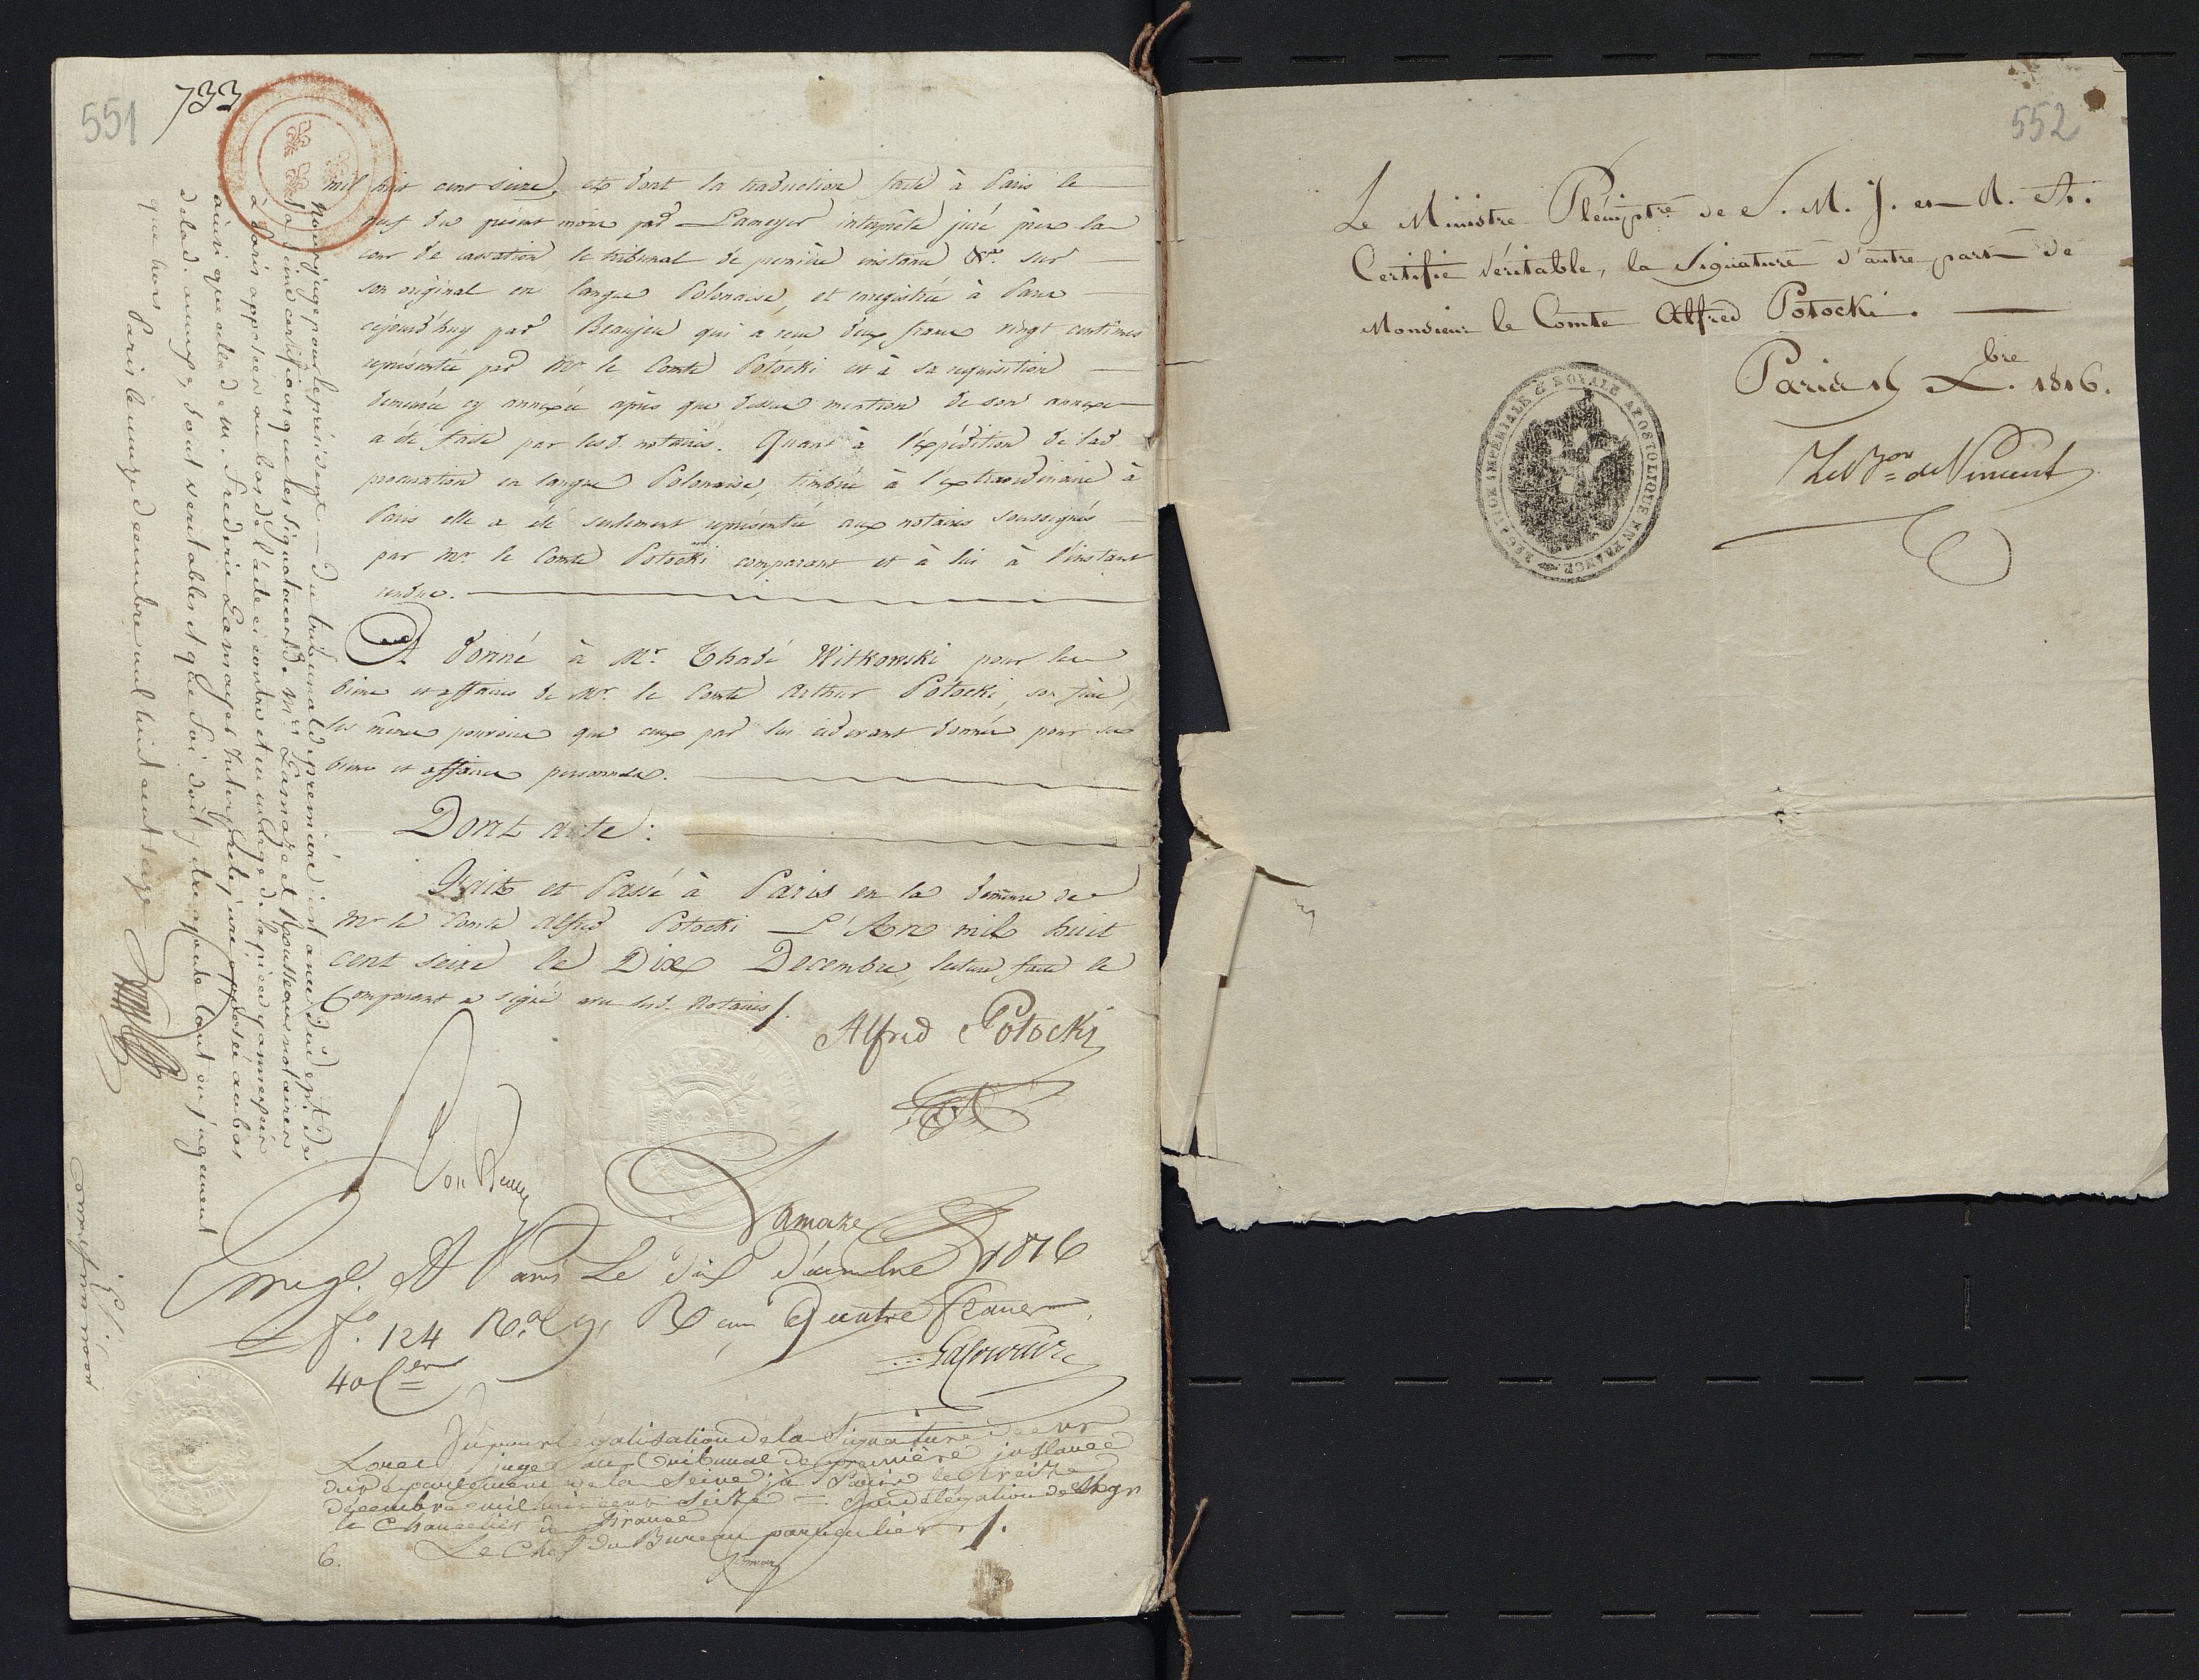 551
733
mil huit cent seize, et dont la traduction faite à Paris le
neuf du présent mois par Lameyer interprète juré près la
cour de cassation le tribunal de première instance &a. sur
son original en langue Polonaise, et enregistrée à Paris
cejourd'huy par Beaujeu qui a reçu deux francs vingt centimes
représentée par Mr le Comte Potocki est à sa requisition
demeurée cy annexée après que dessus mention de son annexe
a été faite par lesd. notaires. Quant à l'expédition de lad
procuration en langue Polonaise, timbrée à l'extraordinaire à
Paris elle a été seulement représentée aux notaires soussignés
par Mr. le Comte Potocki comparant et à lui à l'instant
rendue.
Et donné à Mr. Thadé Witkowski pour les
biens et affaires de Mr. le Comte Arthur Potocki, son frère,
les mêmes pouvoirs que ceux par lui cidevant donnés pour ses
biens et affaires personnelles.
Dont acte:
Fait et Passé à Paris en la demeure de
Mr le Comte Alfred Potocki L'An mil huit
cent seize le Dix Decembre, lecture faite le
Comparant a signé avec lesd. Notaires /.
Alfred Potocki
Lamaze
Enregé. A Paris Le dix décembre 1816
fo. 124 Ro. Quatre francs
40 Cen
Vu pour légalisation de la Signature de Mr
juge au Tribunal de première instance
du département de la Seine; à Paris le treize
décembre mil huit cent Seize = Par délégation de Mgr
le Chancelier de France
Le Chef du Bureau particulier /.
6.
Nous juge pour le président du tribunal de première instance du dept. de
la Seine certifions que les signatures de Mrs. Lamaze et Rousseau notaires
à Paris apposées au bas de l'acte ci contre et en marge de la pièce y annexée
ainsi que celle de M. Frederic Lameyer Interprète juré apposée au bas
de lad. annexe, sont veritables et que foi doit y être ajoutée tant en jugement
que hors Paris le onze decembre mil huit cent seize
552
Le Ministre Pléniptre. de S. M. I. et R. A.
Certifie véritable, la Signature d'autre part de
Monsieur le Comte Alfred Potocki.
Paris 15 Xbre. 1816.
Le Bon de Vincent
LEGATION IMPERIALE & ROYALE APOSTOLIQUE EN FRANCE